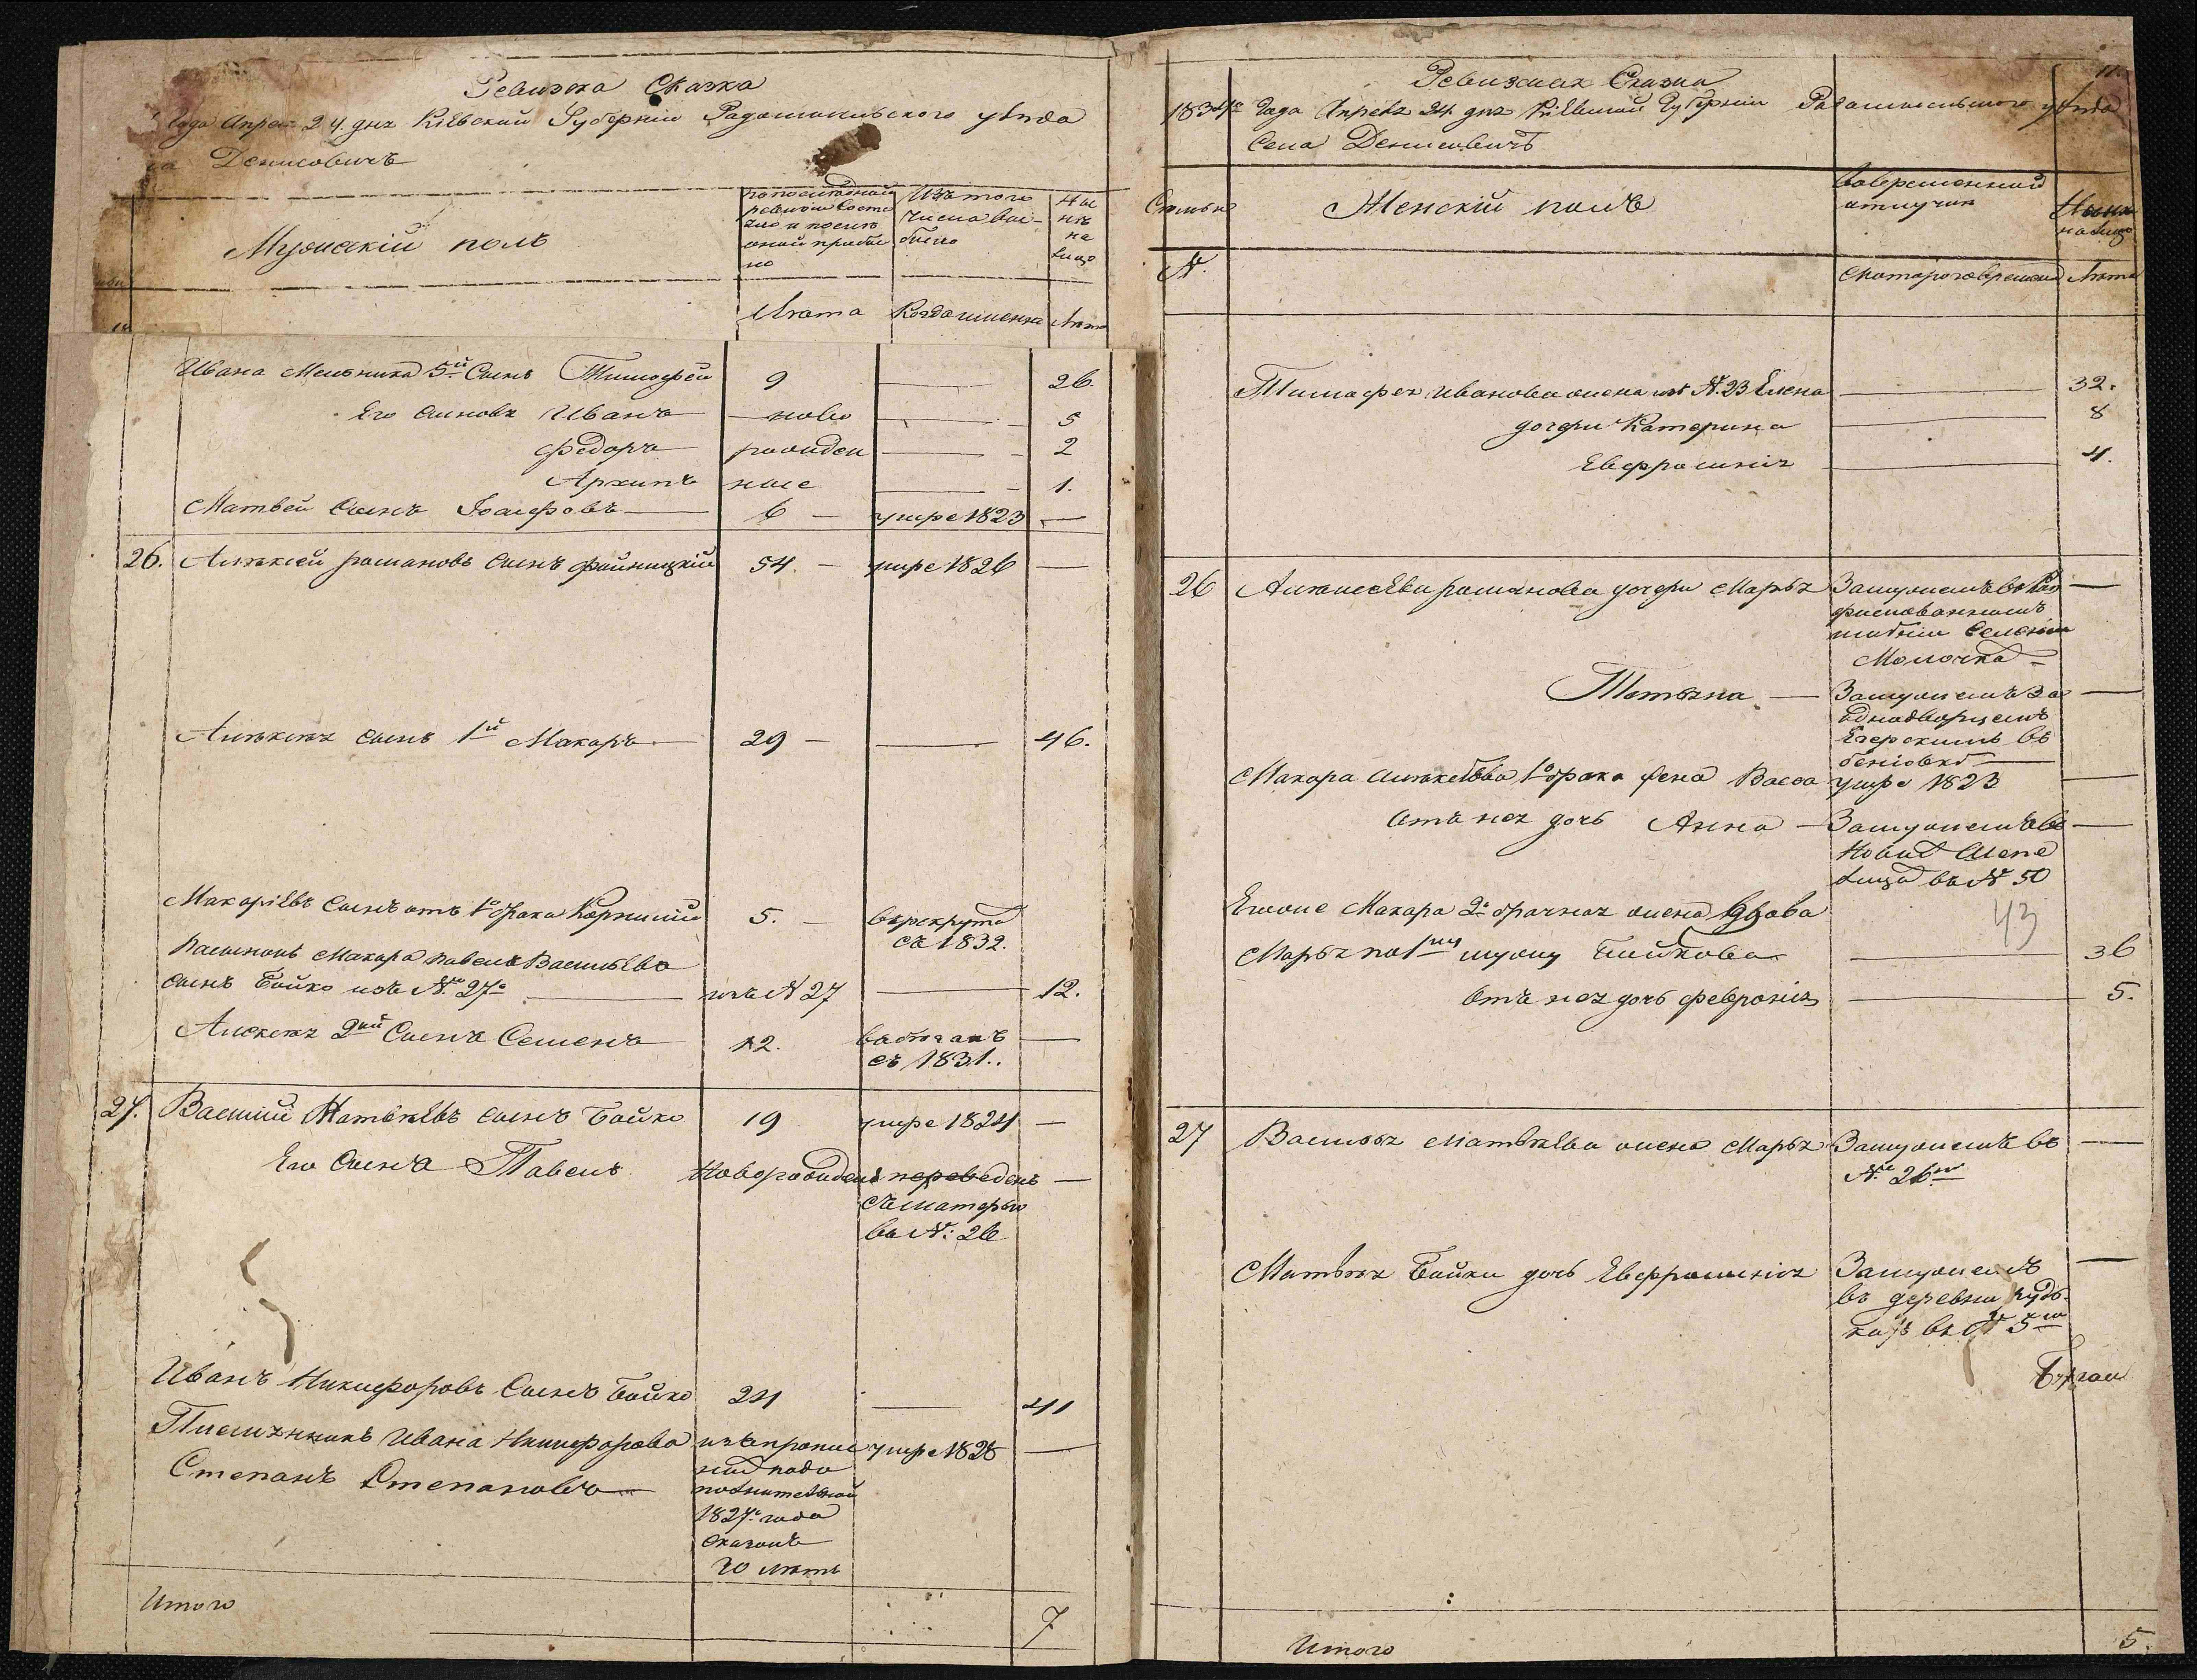 Ревизска Сказка
Года Апреля 24 дня Кіевской Губерніи Радомысльского уѣзда
Денисовичь
Мужескій полъ
по последней
ревизіи состо
яло и после
оной прибы
ло
Изъ того
числа вы-
было
Ны
нѣ
на
лицо
Лѣта
Когда именно
Лѣта
Ивана Мельника 5й Сынъ Тимофей 9 — 26.
Его Сыновя Иванъ — ново — 5
Федоръ рожден — 2
Архипъ ные — 1.
Матвей Сынъ Іосифовъ — 6 — умре 1823 —
26. Алѣксѣй романовъ Сынъ 54. — умре 1826 —
Алѣксѣя сынъ 1й Макаръ — 29 — — 46.
Макаріевъ Сынъ отъ 1го брака Корнилій 5. — въ рекрута
съ 1832.
Пасынокъ Макара Павелъ Васильева
сынъ Бойко изъ №. 27о — изъ № 27 — 12.
Алѣксѣя 2ой Сынъ Семенъ 12. въ бегахъ —
съ 1831.
27. Василій Матвѣевъ сынъ Бойко 19 умре 1824 —
Его Сынъ Павелъ Новорожденъ переведенъ —
съ матерью
въ №: 26
Иванъ Никифоровъ Сынъ Бойко 24 — 41
Племянникъ Ивана Никифорова умре 1828 —
Степанъ Степановъ —
1827о года
20 лѣтъ
Итого 7
11.
Ревизская Сказка
1834го Года Апреля 24 дня Кіевской Губерніи Радомысльского уѣзда
Села Денисовичь
Семьи
Женскій полъ
Во временной
отлучки
Нынѣ
на лицо
№.
Скоторого времени
Лѣта
Тимофея Иванова жена изъ №. 23 Елена — 32.
дочери Катерина — 8
Евфросинія — 4.
26 Алѣксѣева романова дочери Марья Замужемъ въ
Молочка —
Татьяна — Замужемъ за —
однодворцемъ
въ
Макара Алѣксѣева 1го брака жена Васса умре 1823 —
Отъ нея дочь Анна — Замужемъ въ —
въ № 50
Егоже Макара 2о брачная жена вдова
43
Марья по 1му мужу Бойкова — 36
Отъ нея дочь Февронія — 5.
27 Василья Матвѣева жена Марья Замужемъ въ —
№ 26м
Матвѣя Бойки дочь Евфросинія Замужемъ —
въ деревни
въ № 5м
Итого 5.